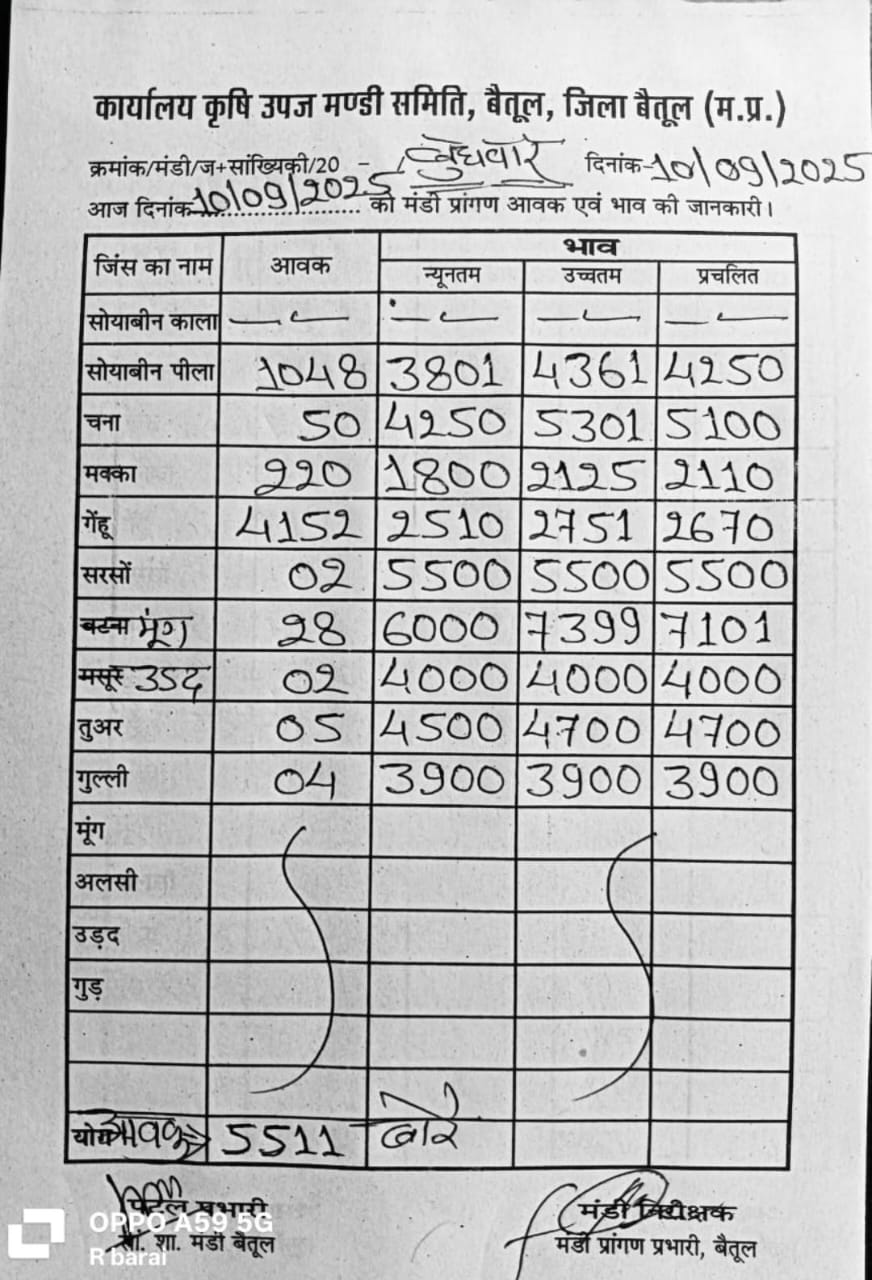 कार्यालय कृषि उपज मण्डी समिति, बैतूल, जिला बैतूल (म.प्र.)
क्रमांक/मंडी/ज+सांख्यिकी/20 - / बुधवार दिनांक-10/09/2025
आज दिनांक 10/09/2025 को मंडी प्रांगण आवक एवं भाव की जानकारी।
जिंस का नाम आवक भाव
न्यूनतम उच्चतम प्रचलित
सोयाबीन काला
सोयाबीन पीला 1048 3801 4361 4250
चना 50 4250 5301 5100
मक्का 220 1800 2125 2110
गेंहू 4152 2510 2751 2670
सरसों 02 5500 5500 5500
बटना मूंग 28 6000 7399 7101
मसूर उड़द 02 4000 4000 4000
तुअर 05 4500 4700 4700
गुल्ली 04 3900 3900 3900
मूंग
अलसी
उड़द
गुड़
योग आवक 5511 बोरे
प्रभारी मंडी निरीक्षक
शा. मंडी बैतूल मंडी प्रांगण प्रभारी, बैतूल
OPPO A59 5G
R barai